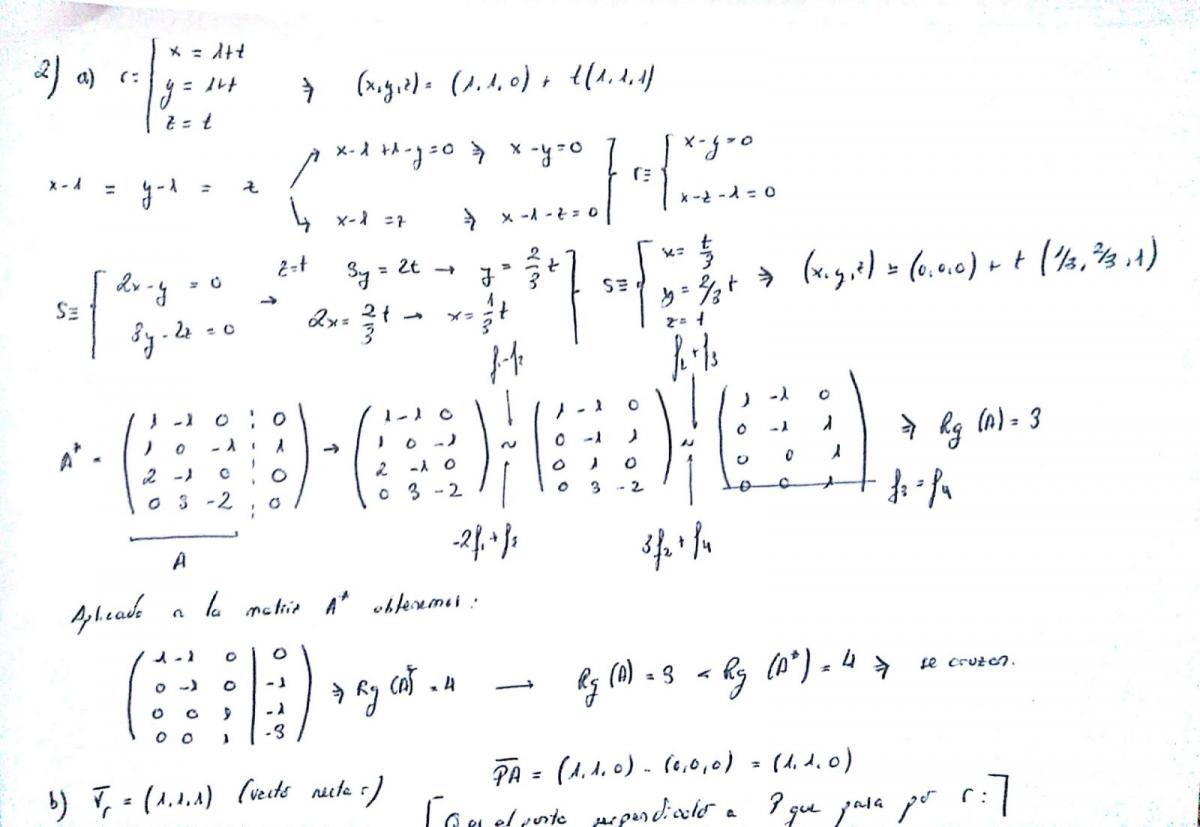 2) a) r= { x = 1+t
y = 1+t ⇒ (x,y,z) = (1,1,0) + t(1,1,1)
z = t
x-1 = y-1 = z
↗ x-1+1-y=0 ⇒ x-y=0
↳ x-1=z ⇒ x-1-z=0 } r≡ { x-y=0
x-z-1=0
S≡ { 2x-y=0
3y-2z=0 → z=t 3y=2t → y=2/3 t
2x=2/3 t → x=1/3 t } S≡ { x=t/3
y=2/3 t
z=t ⇒ (x,y,z) = (0,0,0) + t (1/3, 2/3, 1)
f1-f2 f2+f3
A* = ( 1 -1 0 ¦ 0
1 0 -1 ¦ 1
2 -1 0 ¦ 0
0 3 -2 ¦ 0 )
A
→ ( 1 -1 0
1 0 -1
2 -1 0
0 3 -2 )
~ ( 1 -1 0
0 -1 1
0 1 0
0 3 -2 )
~ ( 1 -1 0
0 -1 1
0 0 1
0 0 1 ) ⇒ Rg (A) = 3
f3 = f4
-2f1+f3 3f2+f4
Aplicado a la matriz A* obtenemos:
( 1 -1 0 | 0
0 -1 0 | -1
0 0 1 | -1
0 0 1 | -3 ) ⇒ Rg (A)* = 4 → Rg (A) = 3 < Rg (A*) = 4 ⇒ se cruzan.
b) Vr = (1,1,1) (vector recta r) PA = (1,1,0) - (0,0,0) = (1,1,0)
[Q es el punto perpendicular a P que pasa por r:]